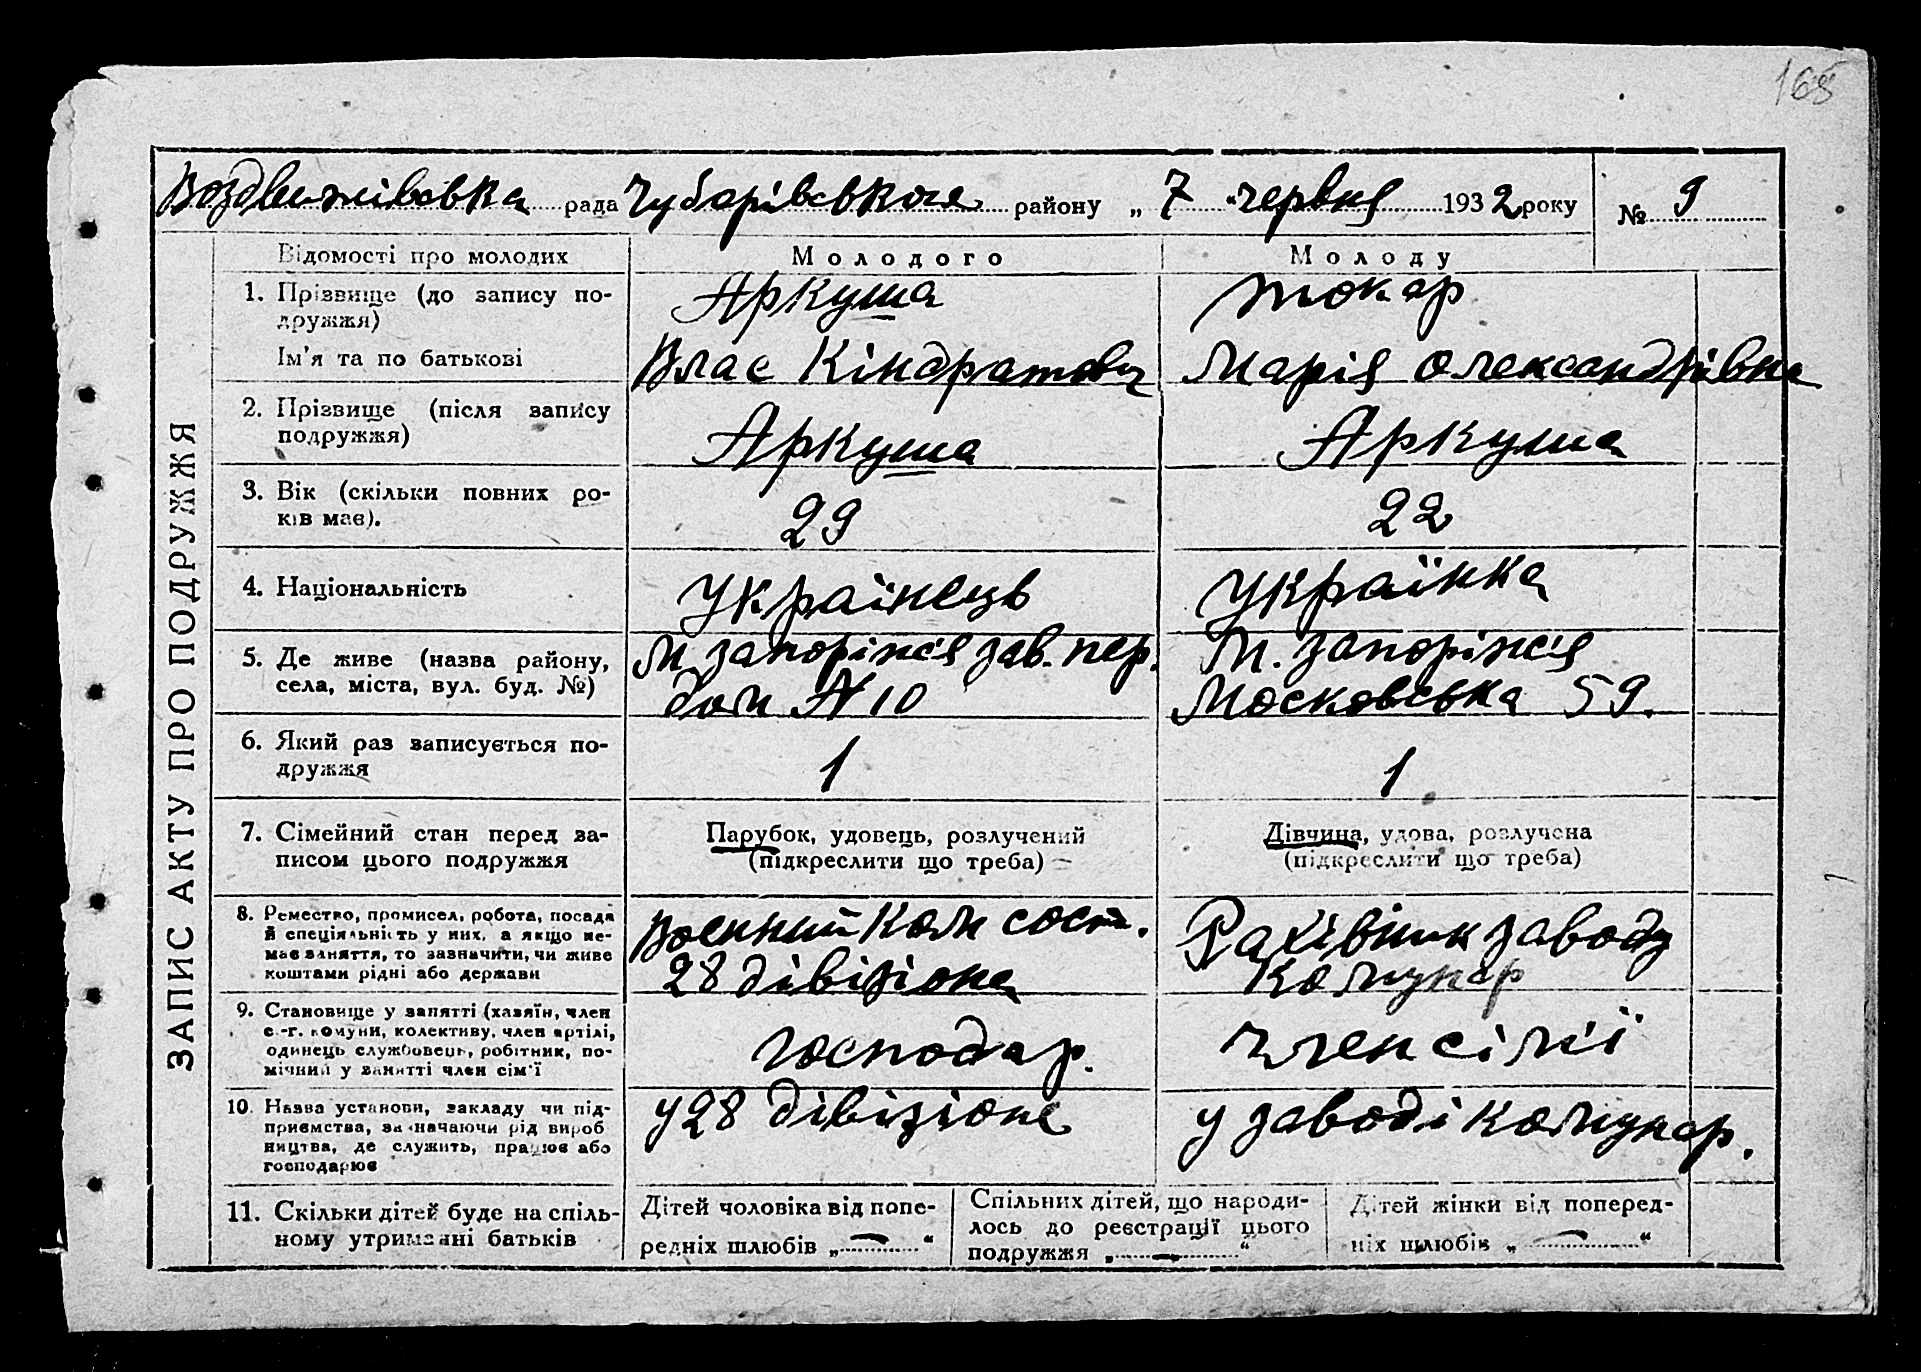 168
Воздвижівська рада Чубарівського району „ 7 “ червня 1932 року № 9
ЗАПИС АКТУ ПРО ПОДРУЖЖЯ
Відомості про молодих Молодого Молоду
1. Прізвище (до запису по- Аркуша Токар
дружжя)
Ім'я та по батькові Влас Кіндратович Марія Олександрівна
2. Прізвище (після запису
подружжя) Аркуша Аркуша
3. Вік (скільки повних ро-
ків має). 29 22
4. Національність Українець Українка
5. Де живе (назва району, М. Запоріжжя зав. пер. М. Запоріжжя
села, міста, вул. буд. №) дом № 10 Московська 59.
6. Який раз записується по-
дружжя 1 1
7. Сімейний стан перед за- Парубок, удовець, розлучений Дівчина, удова, розлучена
писом цього подружжя (підкреслити що треба) (підкреслити що треба)
8. Ремество, промисел, робота, посада Военний ком сост. Рахівник заводу
й спеціяльність у них, а якщо не-
має заняття, то зазначити, чи живе 28 дівізіона Комунар
коштами рідні або держави
9. Становище у занятті (хазяїн, член
с.-г. комуни, колективу, член артілі, господар. член сім'ї
одинець службовець, робітник, по-
мічний у занятті член сім'ї
10. Назва установи, закладу чи під- у 28 дівізіоне у заводі Комунар.
приємства, зазначаючи рід вироб
ництва, де служить, працює або
господарює
11. Скільки дітей буде на спіль- Дітей чоловіка від попе- Спільних дітей, що народи- Дітей жінки від поперед-
ному утриманні батьків редніх шлюбів „ — “ лось до реєстрації цього ніх шлюбів „ — “
подружжя „ — “